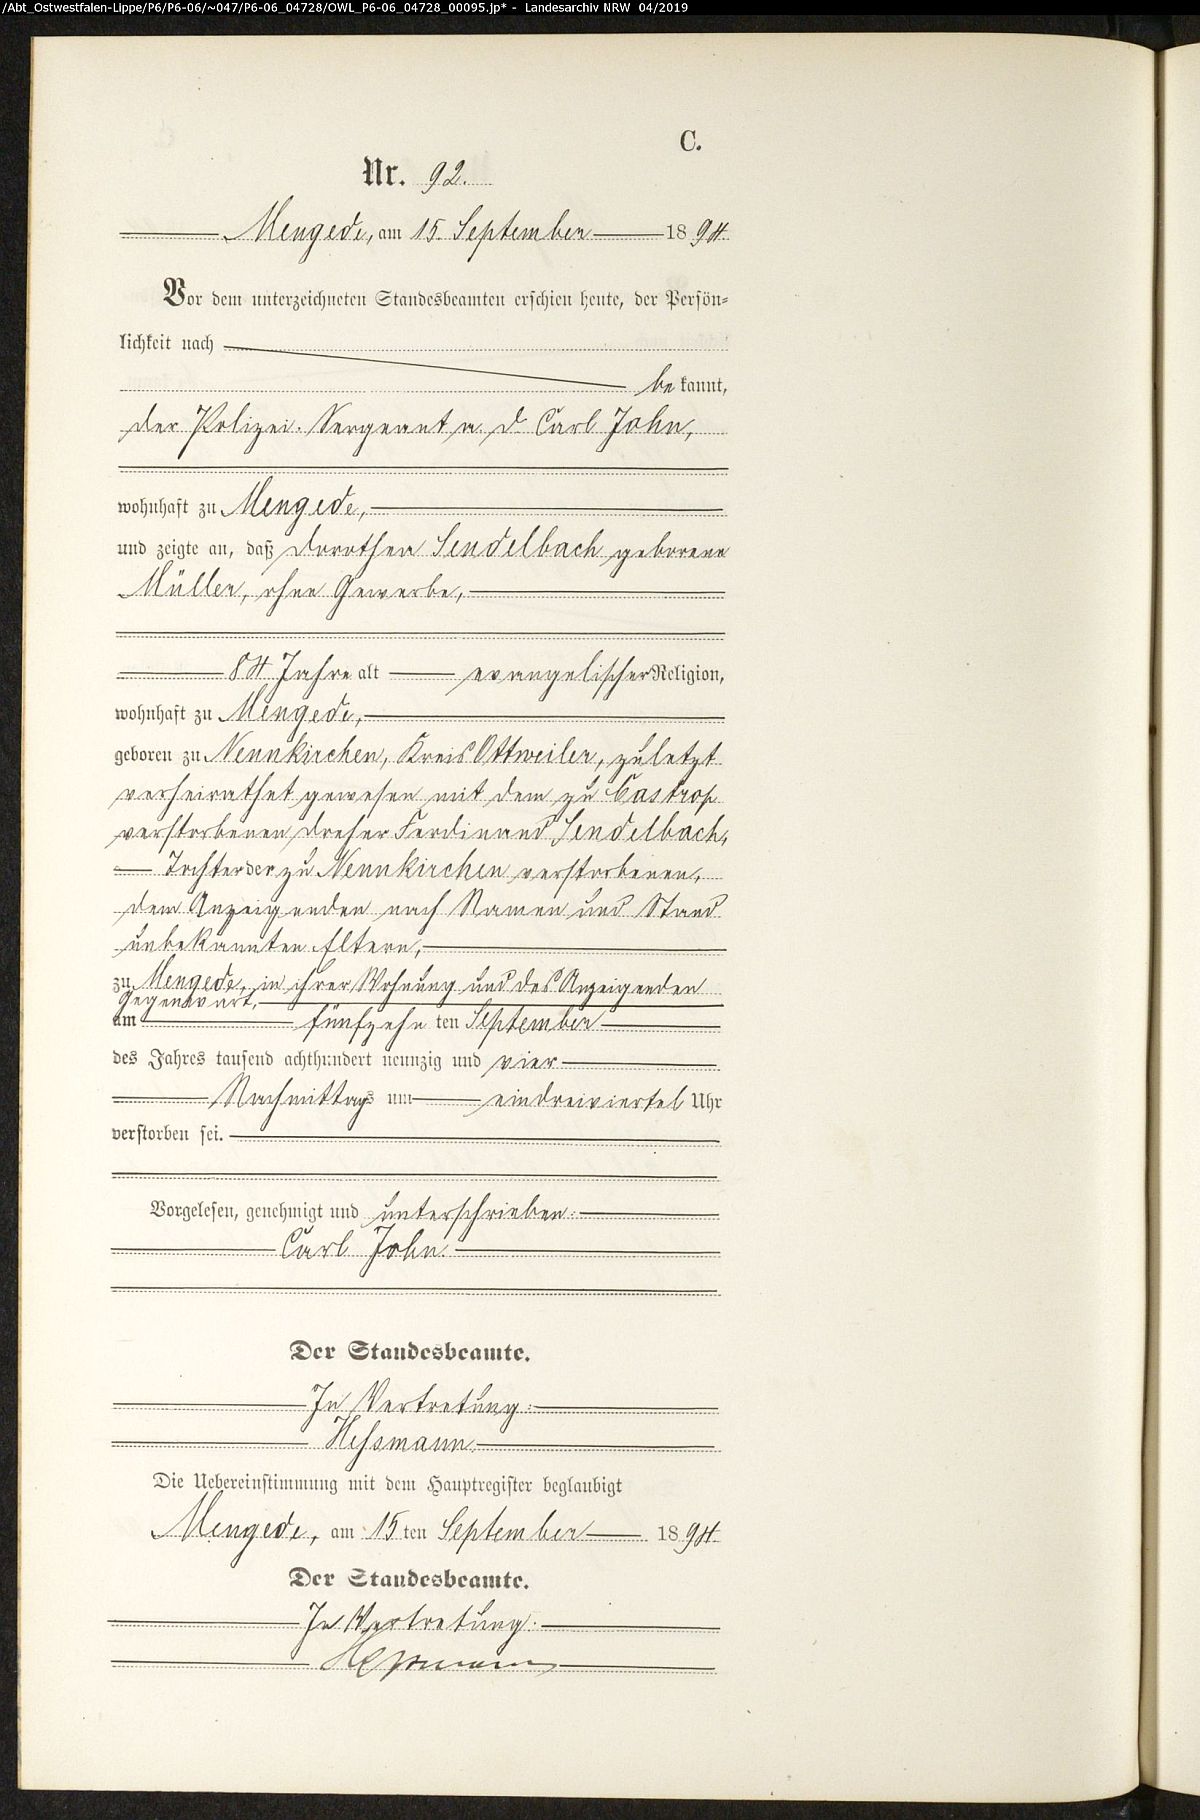 /Abt_Ostwestfalen-Lippe/P6/P6-06/~047/P6-06_04728/OWL_P6-06_04728_00095.jp* - Landesarchiv NRW 04/2019
C.
Nr. 92.
Mengede, am 15. September 1894.
Vor dem unterzeichneten Standesbeamten erschien heute, der Persön-
lichkeit nach
be kannt,
der Polizei-Sergeant a. D. Carl John,
wohnhaft zu Mengede,
und zeigte an, daß Dorothea Sendelbach geborene
Müller, ohne Gewerbe,
84 Jahre alt evangelischer Religion,
wohnhaft zu Mengede,
geboren zu Neunkirchen, Kreis Ottweiler, zuletzt
verheirathet gewesen mit dem zu Castrop
verstorbenen Dreher Ferdinand Sendelbach,
Tochter der zu Neunkirchen verstorbenen,
dem Anzeigenden nach Namen und Stand
unbekannten Eltern,
zu Mengede, in ihrer Wohnung und des Anzeigenden
Gegenwart,
am fünfzehn ten September
des Jahres tausend achthundert neunzig und vier
Nachmittags um eindreiviertel Uhr
verstorben sei.
Vorgelesen, genehmigt und unterschrieben:
Carl John.
Der Standesbeamte.
In Vertretung:
Heßmann.
Die Uebereinstimmung mit dem Hauptregister beglaubigt
Mengede, am 15 ten September 1894.
Der Standesbeamte.
In Vertretung:
Heßmann